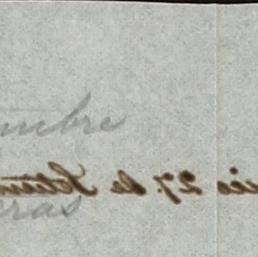 embre
ico 27. de Setiem
eras